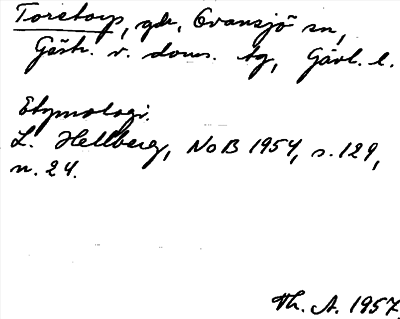 Torstorp, gdr, Ovansjö sn,
Gästr. v. doms. tg, Gävl. l.
Etymologi.
L. Hellberg, NoB 1954, s. 129,
n. 24.
Th. A. 1957.